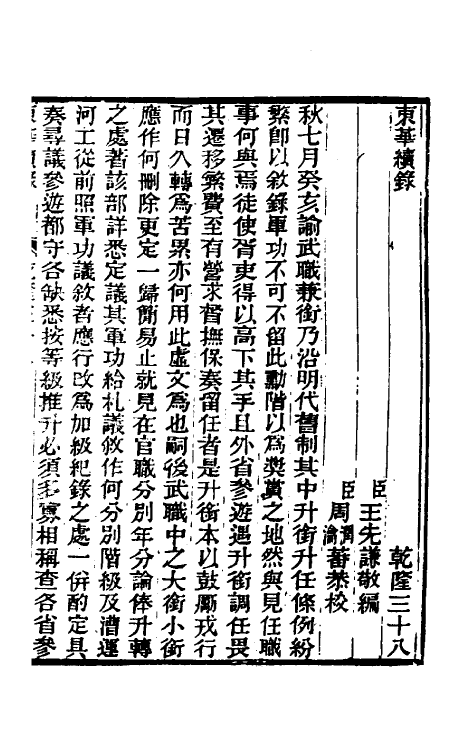 東華續錄
乾隆三十八
臣王先謙敬編
臣周潤蕃周瀹蕃恭校
秋七月癸亥諭武職兼銜乃沿明代舊制其中升銜升任條例紛
繁卽以敘錄軍功不可不留此勳階以爲奬賞之地然與見任職
事何與焉徒使胥吏得以高下其手且外省參遊遇升銜調任畏
其遷移繁費至有營求督撫保奏留任者是升銜本以鼓勵戎行
而日久轉爲苦累亦何用此虛文爲也嗣後武職中之大銜小銜
應作何刪除更定一歸簡易止就見在官職分別年分論俸升轉
之處著該部詳悉定議其軍功給札議敘作何分別階級及漕運
河工從前照軍功議敘者應行改爲加級紀錄之處一併酌定具
奏尋議參遊都守各缺悉按等級推升必須多寡相稱查各省參